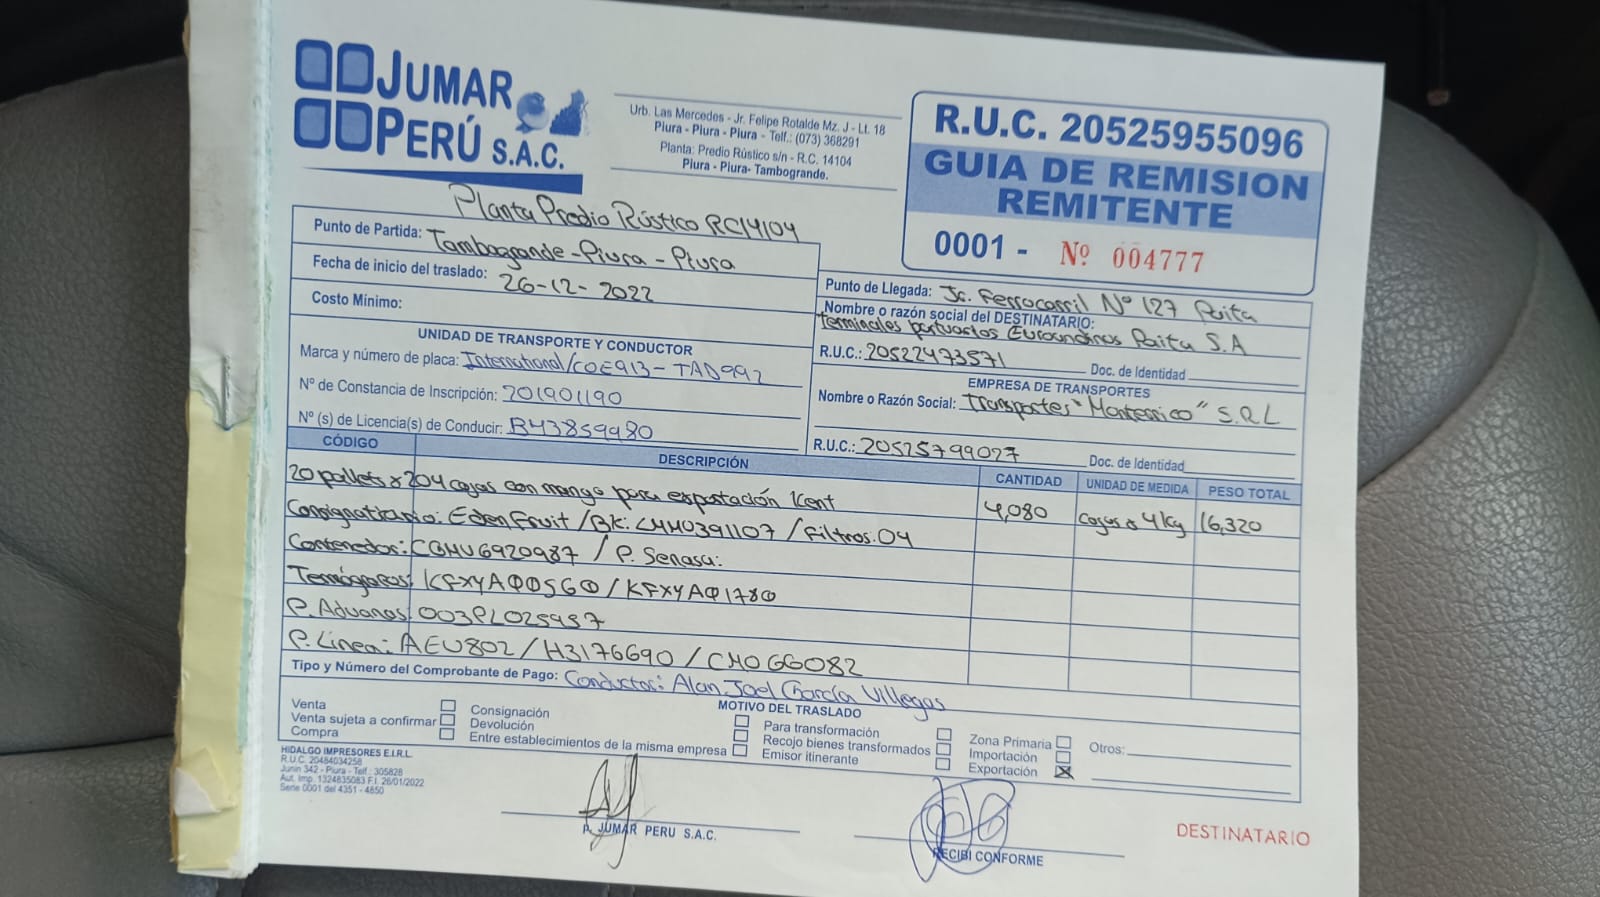 JUMAR
PERÚ S.A.C.
Urb. Las Mercedes - Jr. Felipe Rotalde Mz. J - Lt. 18
Piura - Piura - Piura - Telf.: (073) 368291
Planta: Predio Rústico s/n - R.C. 14104
Piura - Piura- Tambogrande.
R.U.C. 20525955096
GUIA DE REMISION
REMITENTE
0001 - Nº 004777
Planta Predio Rústico RC14104
Punto de Partida: Tambogrande - Piura - Piura
Fecha de inicio del traslado: 26-12-2022
Costo Mínimo:
Punto de Llegada: Jr. Ferrocarril Nº 127 Paita
Nombre o razón social del DESTINATARIO:
terminales portuarios Euroandinos Paita S.A
R.U.C.: 20522473571 Doc. de Identidad
UNIDAD DE TRANSPORTE Y CONDUCTOR
Marca y número de placa: International/COE913-TAD992
Nº de Constancia de Inscripción: 201901190
Nº (s) de Licencia(s) de Conducir: B43859980
EMPRESA DE TRANSPORTES
Nombre o Razón Social: Transportes "Monterrico" S.R.L
R.U.C.: 20525799027 Doc. de Identidad
CÓDIGO DESCRIPCIÓN CANTIDAD UNIDAD DE MEDIDA PESO TOTAL
20 pallets x 204 cajas con mango para exportación Kent 4,080 cajas x 4kg 16,320
Consignatario: Eden Fruit / BK: LMM0391107 / Filtros: 04
Contenedor: CGMU6920987 / P. Senasa:
Termógrafos: KFXYA00560 / KFXYA01780
P. Aduanas: 003PL025957
P. Linea: AEU802 / H3176690 / CM066082
Tipo y Número del Comprobante de Pago: Conductor: Alan Joel García Villegas
MOTIVO DEL TRASLADO
Venta
Venta sujeta a confirmar
Compra
Consignación
Devolución
Entre establecimientos de la misma empresa
Para transformación
Recojo bienes transformados
Emisor itinerante
Zona Primaria
Importación
Exportación X
Otros:
HIDALGO IMPRESORES E.I.R.L.
R.U.C. 20484034258
Junín 342 - Piura - Telf.: 305828
Aut. Imp. 1324835083 F.I. 26/01/2022
Serie 0001 del 4351 - 4850
p. JUMAR PERU S.A.C.
RECIBI CONFORME
DESTINATARIO